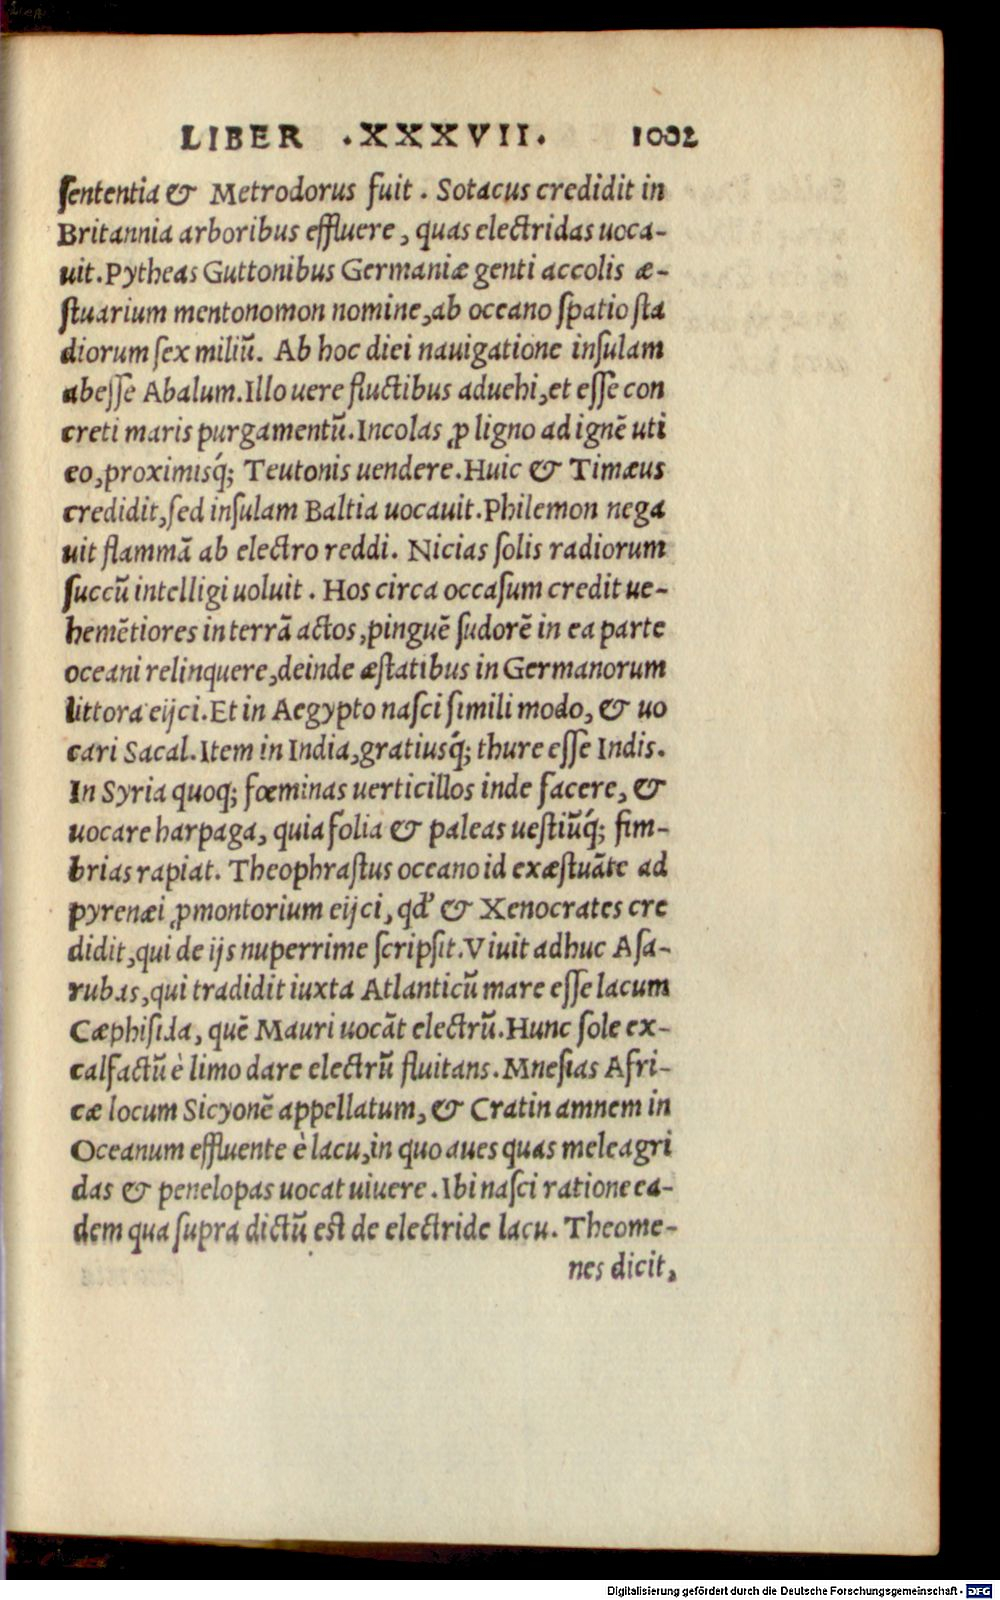 LIBER .XXXVII. 1002
ſententia & Metrodorus fuit . Sotacus credidit in
Britannia arboribus effluere , quas electridas uoca-
uit.Pytheas Guttonibus Germaniæ genti accolis æ-
ſtuarium mentonomon nomine,ab oceano ſpatio ſta
diorum ſex miliũ. Ab hoc diei nauigatione inſulam
abeſſe Abalum.Illo uere fluctibus aduehi,et eſſe con
creti maris purgamentũ.Incolas ꝓ ligno ad ignẽ uti
eo,proximisq́; Teutonis uendere.Huic & Timæus
credidit,ſed inſulam Baltia uocauit.Philemon nega
uit flammã ab electro reddi. Nicias ſolis radiorum
ſuccũ intelligi uoluit . Hos circa occaſum credit ue-
hemẽtiores in terrã actos,pinguẽ ſudorẽ in ea parte
oceani relinquere,deinde æſtatibus in Germanorum
littora eijci.Et in Aegypto naſci ſimili modo, & uo
cari Sacal.Item in India,gratiusq́; thure eſſe Indis.
In Syria quoq; fœminas uerticillos inde facere, &
uocare harpaga, quia folia & paleas ueſtiũq́; fim-
brias rapiat. Theophraſtus oceano id exæſtuãte ad
pyrenæi ꝓmontorium eijci, qđ & Xenocrates cre
didit,qui de ijs nuperrime ſcripſit.Viuit adhuc Aſa-
rubas,qui tradidit iuxta Atlanticũ mare eſſe lacum
Cæphiſida, quẽ Mauri uocãt electrũ.Hunc ſole ex-
calfactũ è limo dare electrũ fluitans.Mneſias Afri-
cæ locum Sicyonẽ appellatum, & Cratin amnem in
Oceanum effluente è lacu,in quo aues quas meleagri
das & penelopas uocat uiuere.Ibi naſci ratione ea-
dem qua ſupra dictũ eſt de electride lacu. Theome-
nes dicit,
Digitalisierung gefördert durch die Deutsche Forschungsgemeinschaft - DFG